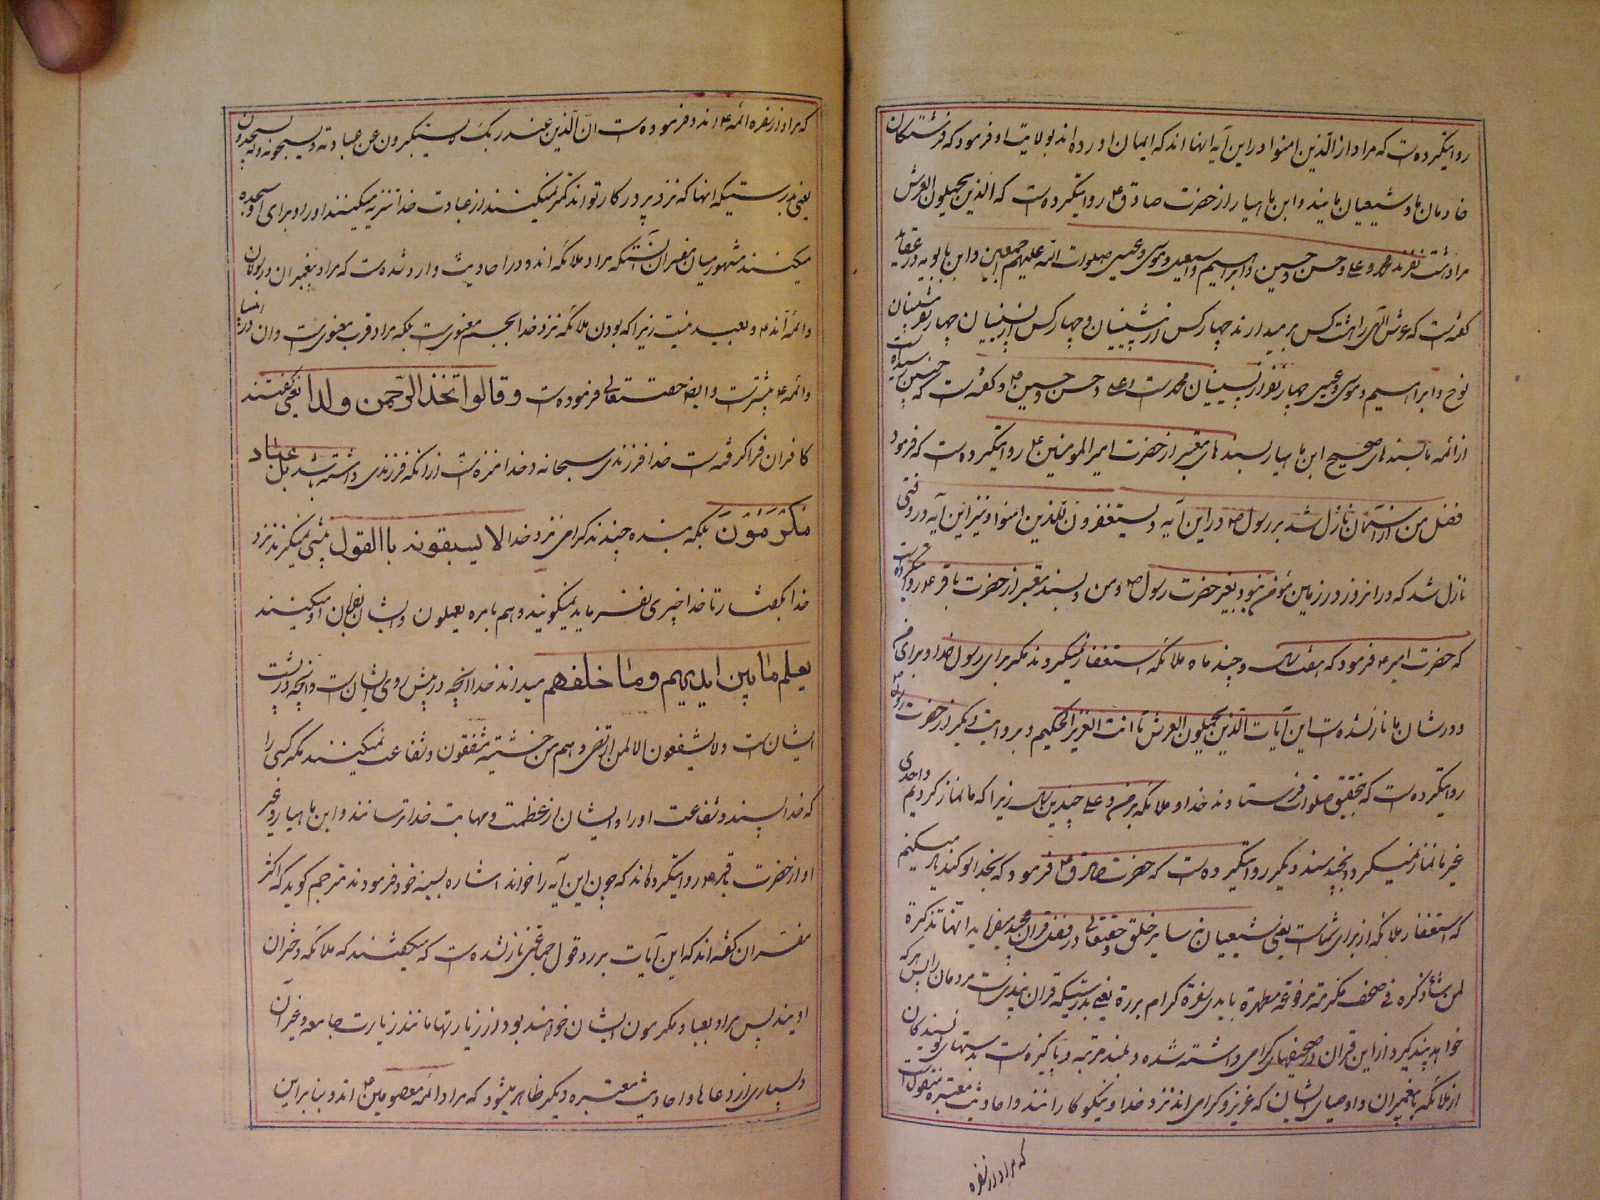 روایتکرده‌ست که مراد از الذین امنوا در این آیه آنها اند که ایمان اورده اند بولایت ما و فرمود که فرشتگان
خادمان ما و شیعیان مایند و ابن ماهیار از حضرت صادق ع روایتکرده‌ست که الذین یحملون العرش
مراد هشت نفرند محمد و علی و حسن و حسین و ابراهیم و اسمعیل و موسی و عیسی صلوات الله علیهم اجمعین و ابن بابویه در عقاید
گفته‌ست که عرش الهی را هشت کس بر میدارند چهار کس از پیشینیان و چهار کس از پسینیان چهار نفر پیشینیان
نوح و ابراهیم و موسی و عیسی چهار نفر از پسینیان محمد ست و علی و حسن و حسین ع و گفته‌ست که چنین رسیده است
از ائمه ما بسندهای صحیح ابن ماهیار بسندهای معتبر از حضرت امیرالمومنین ع روایتکرده‌ست که فرمود
فضل من از آسمان نازل شد بر رسول ص در این آیه و یستغفرون للذین امنوا و نیز این آیه در وقتی
نازل شد که در انروز در زمین مؤمنی نبود بغیر حضرت رسول ص و من و بسند معتبر از حضرت باقر ع روایتکرده‌ست
که حضرت امیر ع فرمود که هفت سال و چند ماه ملائکه استغفار نمیکردند مگر برای رسول خدا و برای من
و در شان ما نازلشده‌ست این آیات الذین یحملون العرش تا انت العزیز الحکیم و بروایت دیگر از حضرت رسول ص
روایتکرده‌ست که بتحقیق صلوات فرستادند خدا و ملائکه بر من و علی چندین سال زیرا که ما نماز کردیم و احدی
غیر ما نماز نمیکرد و بچند سند دیگر روایتکرده‌ست که حضرت صادق ع فرمود که بخدا سوگند یاد میکنیم
که استغفار ملائکه از برای شماست یعنی شیعیان نه سایر خلق و حقتعالی در فضل قران مجید میفرماید انها تذکرة
لمن شاء ذکره فی صحف مکرمة مرفوعة مطهرة بایدی سفرة کرام بررة یعنی بدرستیکه قران پندیست مردمانرا پس هر که
خواهد پند گیرد از این قران در صحیفهای گرامی داشته شده و بلند مرتبه و پاکیزه‌ست بدستهای نویسندگان
از ملائکه یا پیغمبران و اوصیای ایشان که عزیز و گرامی اند نزد خدا و نیکوکارانند و احادیث معتبره منقولست
که مراد از سفره
که مراد از سفره ائمه ع اند و فرموده‌ست ان الذین عند ربک لا یستکبرون عن عبادته و یسبحونه و له یسجدون
یعنی بدرستیکه انها که نزد پروردگار تو اند تکبر نمیکنند از عبادت خدا تنزیه میکنند او را و برای او سجده
میکنند مشهور میان مفسران آنستکه مراد ملائکه اند و در احادیث وارد شده‌ست که مراد پیغمبران و رسولان
و ائمه اند ع و بعید نیست زیرا که بودن ملائکه نزد خدا بجسم معنویست بلکه مراد قرب معنویست و ان در انبیا
و ائمه ع بیشترست و ایضا حقتعالی فرموده‌ست و قالوا اتخذ الرحمن ولدا یعنی گفتند
کافران فرا گرفته‌ست خدا فرزندی سبحانه و خدا منزه‌ست از آنکه فرزندی داشته باشد بل عباد
مکرمون بلکه بنده چندند گرامی نزد خدا لا یسبقونه باالقول پیشی نمیگیرند نزد
خدا بگفتار تا خدا چیزی نفرماید نمیگویند و هم بامره یعملون و ایشان بفرمان او میکنند
یعلم ما بین ایدیهم و ما خلفهم میداند خدا انچه در پیش روی ایشان ست و انچه در پشت
ایشان ست و لا یشفعون الا لمن ارتضی و هم من خشیته مشفقون و شفاعت نمیکنند مگر کسی را
که خدا پسندد شفاعت او را و ایشان از عظمت و مهابت خدا ترسانند و ابن ماهیار و غیر
او از حضرت باقر ع روایتکرده‌اند که چون این آیه را خواند اشاره بسینه خود فرمودند مترجم گوید که اکثر
مفسران گفته‌اند که این آیات بر رد قول جماعتی نازلشده‌ست که میگفتند که ملائکه دختران
اویند پس مراد بعباد مکرمون ایشان خواهند بود و از زیارتها مانند زیارت جامعه و غیر آن
و بسیاری از دعاها و احادیث معتبره دیگر ظاهر میشود که مراد ائمه معصومین ع اند و بنابراین